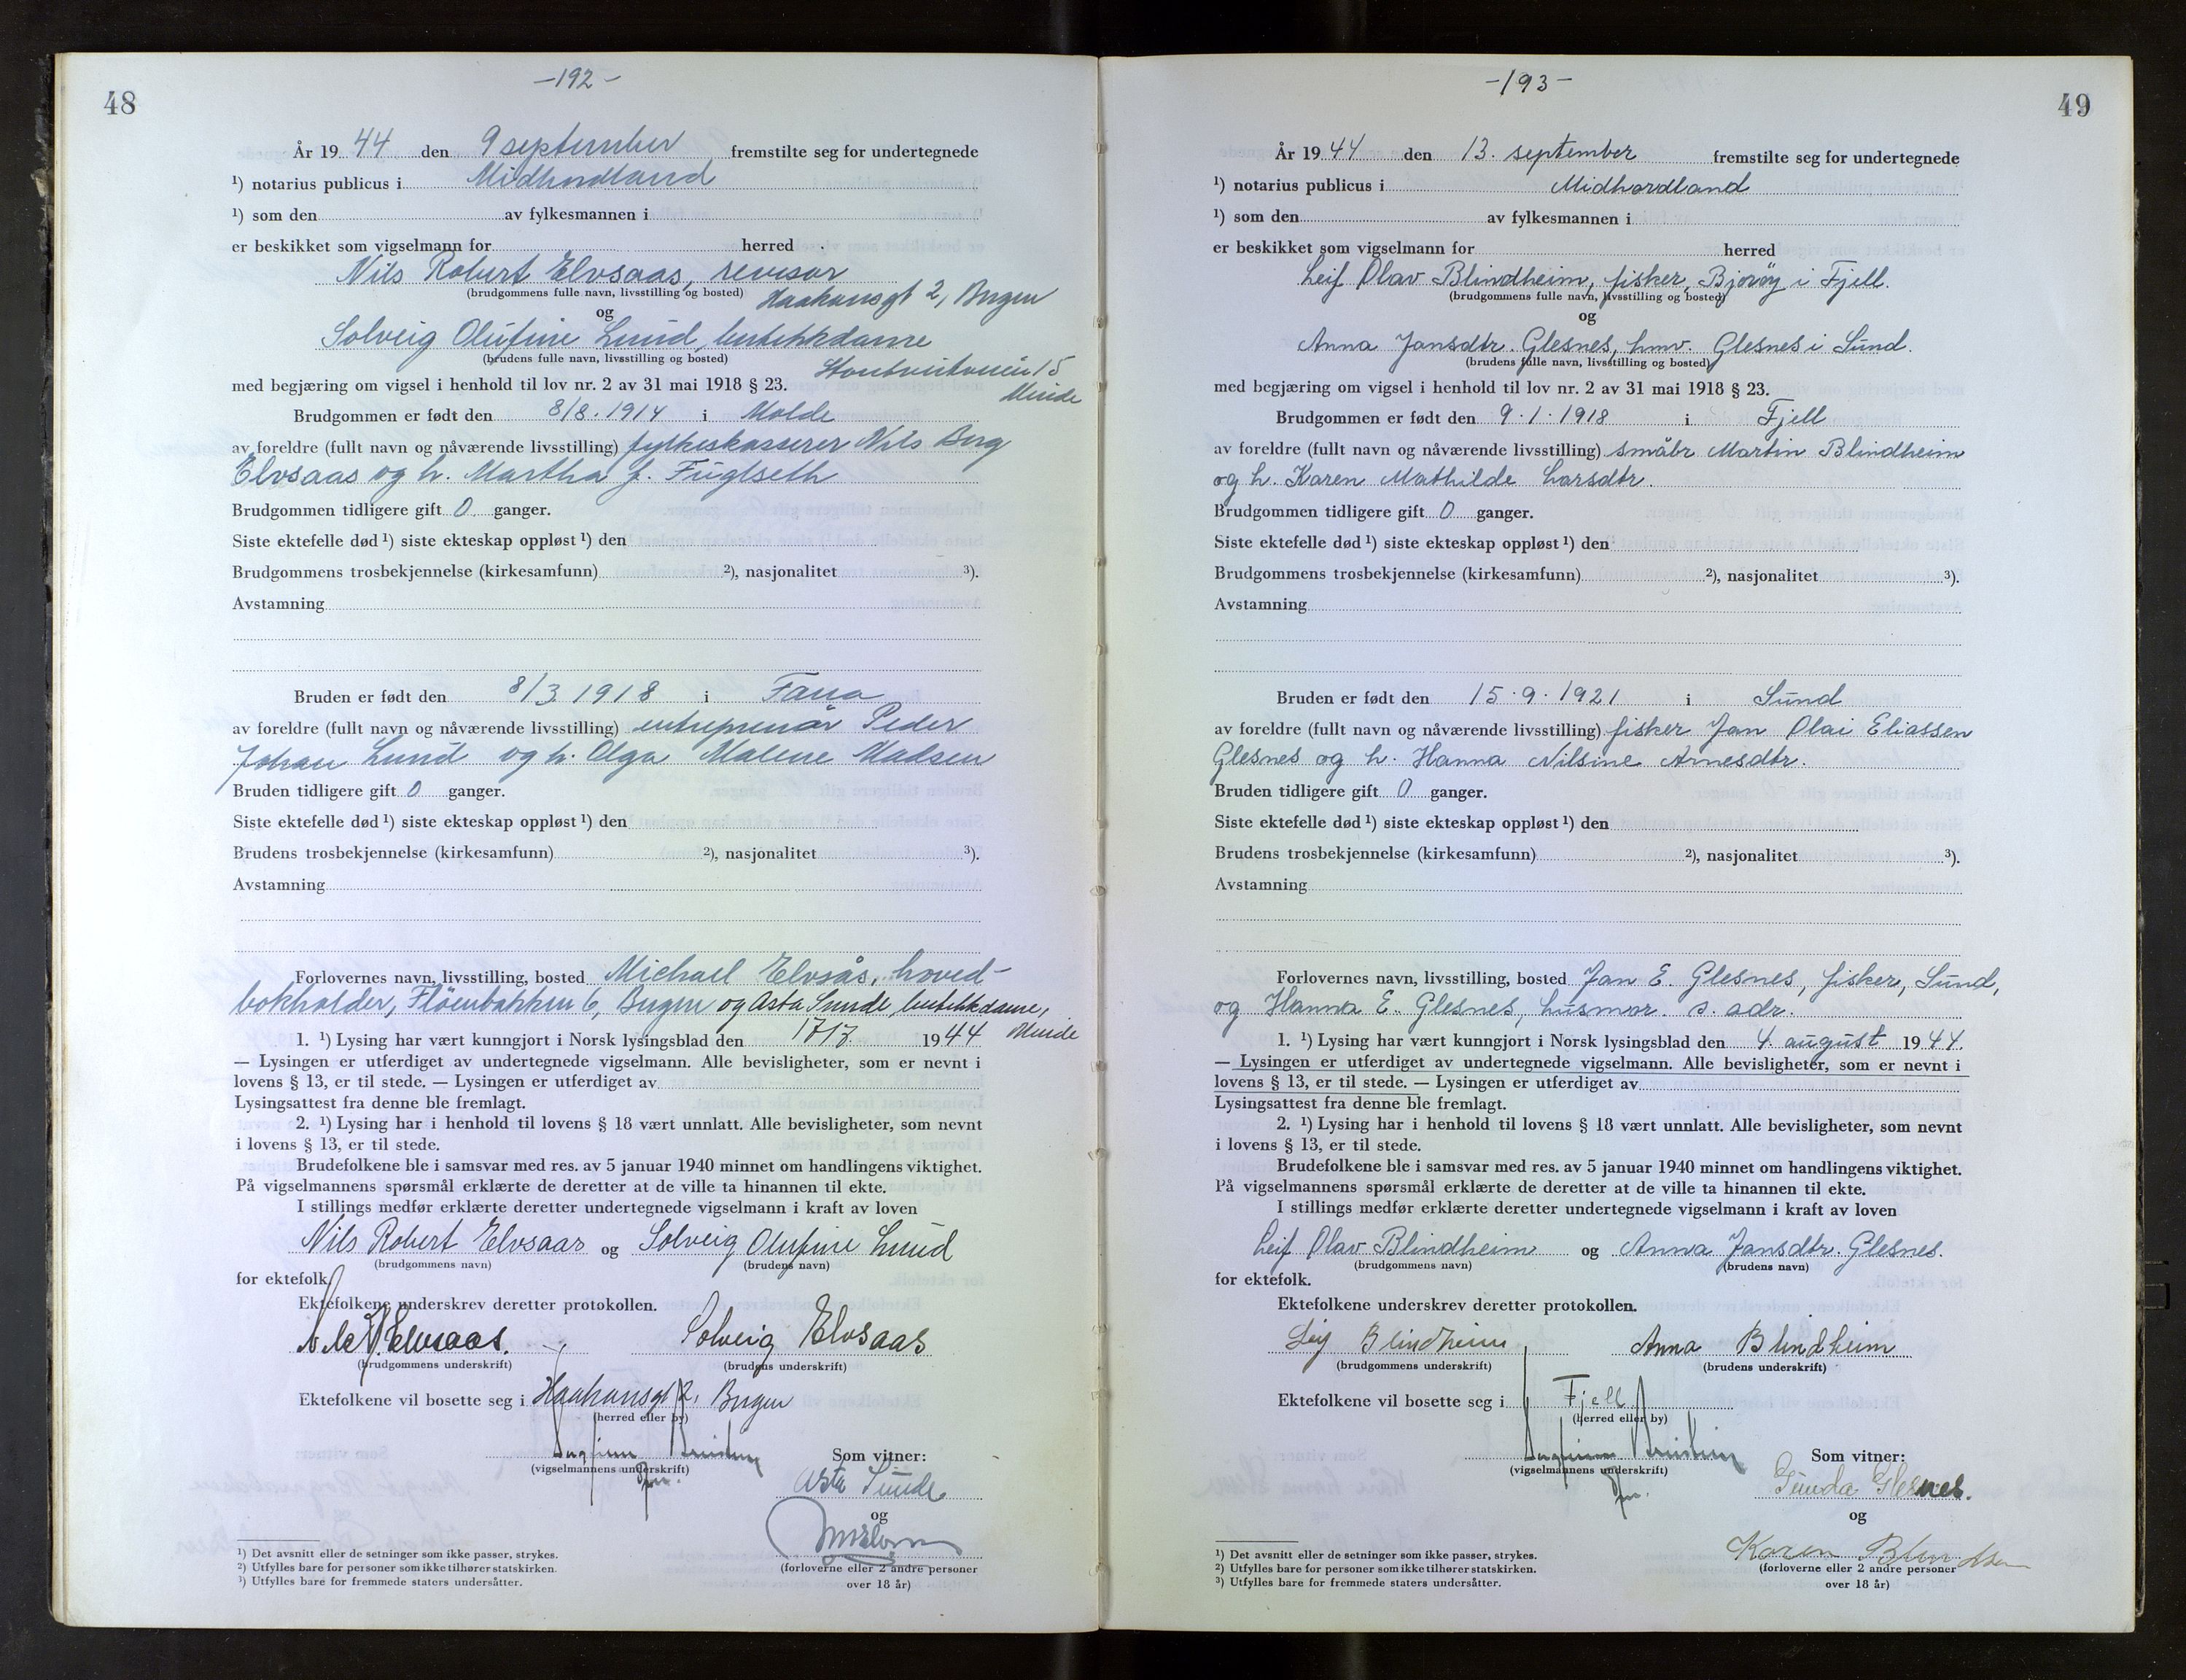 48
-192-
År 19 44 den 9 september fremstilte seg for undertegnede
¹) notarius publicus i Midhordland
¹) som den av fylkesmannen i
er beskikket som vigselmann for herred
Nils Robert Elvsaas, revisor
(brudgommens fulle navn, livsstilling og bosted) Haakonsgt 2, Bergen
og
Solveig Olufine Lund, butikkdame
(brudens fulle navn, livsstilling og bosted)
15
Minde
med begjæring om vigsel i henhold til lov nr. 2 av 31 mai 1918 § 23.
Brudgommen er født den 8/8. 1914 i Molde
av foreldre (fullt navn og nåværende livsstilling) fylkeskasserer Nils Berg
Elvsaas og h. Martha f. Fuglseth
Brudgommen tidligere gift 0 ganger.
Siste ektefelle død ¹) siste ekteskap oppløst ¹) den
Brudgommens trosbekjennelse (kirkesamfunn) ²), nasjonalitet ³).
Avstamning
Bruden er født den 8/3 1918 i Fana
av foreldre (fullt navn og nåværende livsstilling) entreprenør Peder
Johan Lund og h. Olga Malene Madsen
Bruden tidligere gift 0 ganger.
Siste ektefelle død ¹) siste ekteskap oppløst ¹) den
Brudens trosbekjennelse (kirkesamfunn) ²), nasjonalitet ³).
Avstamning
Forlovernes navn, livsstilling, bosted Michael Elvsås, hoved-
bokholder, Fløenbakken 6, Bergen og Asta Sunde, butikkdame,
Minde
1. ¹) Lysing har vært kunngjort i Norsk lysingsblad den 17/7. 1944
— Lysingen er utferdiget av undertegnede vigselmann. Alle bevisligheter, som er nevnt i
lovens § 13, er til stede. — Lysingen er utferdiget av
Lysingsattest fra denne ble fremlagt.
2. ¹) Lysing har i henhold til lovens § 18 vært unnlatt. Alle bevisligheter, som nevnt
i lovens § 13, er til stede.
Brudefolkene ble i samsvar med res. av 5 januar 1940 minnet om handlingens viktighet.
På vigselmannens spørsmål erklærte de deretter at de ville ta hinannen til ekte.
I stillings medfør erklærte deretter undertegnede vigselmann i kraft av loven
Nils Robert Elvsaas og Solveig Olufine Lund
(brudgommens navn) (brudens navn)
for ektefolk.
Ektefolkene underskrev deretter protokollen.
Elvsaas. Solveig Elvsaas
(brudgommens underskrift) (brudens underskrift)
Ektefolkene vil bosette seg i Haakonsgt 2, Bergen
(herred eller by)
(vigselmannens underskrift)
Som vitner:
Asta Sunde
og
(forloverne eller 2 andre personer
over 18 år)
¹) Det avsnitt eller de setninger som ikke passer, strykes.
²) Utfylles bare for personer som ikke tilhører statskirken.
³) Utfylles bare for fremmede staters undersåtter.
49
-193-
År 19 44 den 13. september fremstilte seg for undertegnede
¹) notarius publicus i Midhordland
¹) som den av fylkesmannen i
er beskikket som vigselmann for herred
Leif Olav Blindheim, fisker, Bjorøy i Fjell.
(brudgommens fulle navn, livsstilling og bosted)
og
Anna Jansdtr. Glesnes, hmv. Glesnes i Sund.
(brudens fulle navn, livsstilling og bosted)
med begjæring om vigsel i henhold til lov nr. 2 av 31 mai 1918 § 23.
Brudgommen er født den 9.1.1918 i Fjell
av foreldre (fullt navn og nåværende livsstilling) småbr Martin Blindheim
og h. Karen Mathilde Larsdtr.
Brudgommen tidligere gift 0 ganger.
Siste ektefelle død ¹) siste ekteskap oppløst ¹) den
Brudgommens trosbekjennelse (kirkesamfunn) ²), nasjonalitet ³).
Avstamning
Bruden er født den 15.9.1921 i Sund
av foreldre (fullt navn og nåværende livsstilling) fisker Jan Olai Eliassen
Glesnes og h. Hanna Nilsine Arnesdtr.
Bruden tidligere gift 0 ganger.
Siste ektefelle død ¹) siste ekteskap oppløst ¹) den
Brudens trosbekjennelse (kirkesamfunn) ²), nasjonalitet ³).
Avstamning
Forlovernes navn, livsstilling, bosted Jan E. Glesnes, fisker, Sund,
og Hanna E. Glesnes, husmor. s. adr.
1. ¹) Lysing har vært kunngjort i Norsk lysingsblad den 4. august 1944.
— Lysingen er utferdiget av undertegnede vigselmann. Alle bevisligheter, som er nevnt i
lovens § 13, er til stede. — Lysingen er utferdiget av
Lysingsattest fra denne ble fremlagt.
2. ¹) Lysing har i henhold til lovens § 18 vært unnlatt. Alle bevisligheter, som nevnt
i lovens § 13, er til stede.
Brudefolkene ble i samsvar med res. av 5 januar 1940 minnet om handlingens viktighet.
På vigselmannens spørsmål erklærte de deretter at de ville ta hinannen til ekte.
I stillings medfør erklærte deretter undertegnede vigselmann i kraft av loven
Leif Olav Blindheim og Anna Jansdtr. Glesnes.
(brudgommens navn) (brudens navn)
for ektefolk.
Ektefolkene underskrev deretter protokollen.
Leif Blindheim Anna Blindheim
(brudgommens underskrift) (brudens underskrift)
Ektefolkene vil bosette seg i Fjell
(herred eller by)
(vigselmannens underskrift)
Som vitner:
Gunda Glesnes.
og
Karen
(forloverne eller 2 andre personer
over 18 år)
¹) Det avsnitt eller de setninger som ikke passer, strykes.
²) Utfylles bare for personer som ikke tilhører statskirken.
³) Utfylles bare for fremmede staters undersåtter.